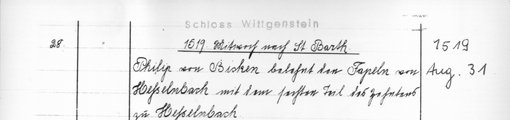 Schloss Wittgenstein
28 1519 Mitwoch nach St Barth 1519
Philip von Bicken belehnt den Tapeln von Aug. 31
Hesselnbach mit dem sechsten Teil des Zehntens
zu Hesselnbach